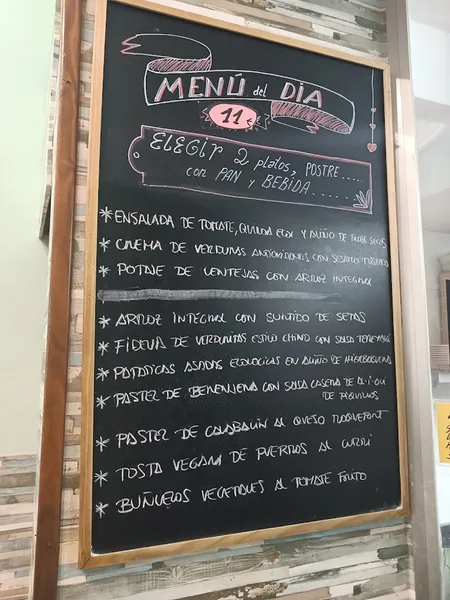 MENÚ del DIA
11 €
ELEGIR 2 platos, POSTRE.....
con PAN y BEBIDA.......
* ENSALADA DE TOMATE, QUINOA ECOL Y ALIÑO DE FRUTA SECOS
* CREMA DE VERDURAS ANTIOXIDANTES CON SESAMO TOSTADO
* POTAJE DE LENTEJAS CON ARROZ INTEGRAL
* ARROZ INTEGRAL CON SURTIDO DE SETAS
* FIDEUA DE VERDURITAS ESTILO CHINO CON SALSA TERIYAKI
* PATATICAS ASADAS ECOLOGICAS EN ALIÑO DE HIERBABUENA
* PASTEL DE BERENJENA CON SALSA CASERA DE ALI-OLI
DE PIQUILLOS
* PASTEL DE CALABACIN AL QUESO ROQUEFORT
* TOSTA VEGANA DE PUERROS AL CURRI
* BUÑUELOS VEGETALES AL TOMATE FRITO